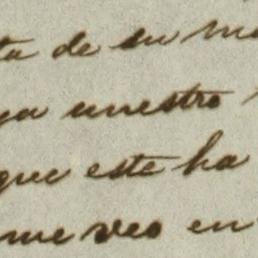 ta de su m
ya nuestro
que este ha
me veo en